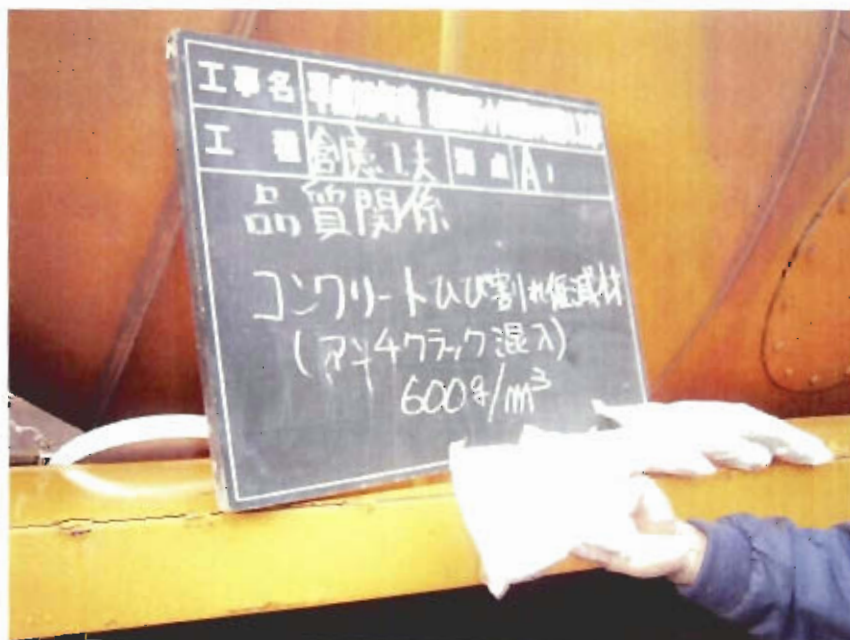 工事名 平成 年度
工種 創意工夫 測点 A1
品質関係
コンクリートひび割れ低減材
(アンチクラック混入)
600g/m³